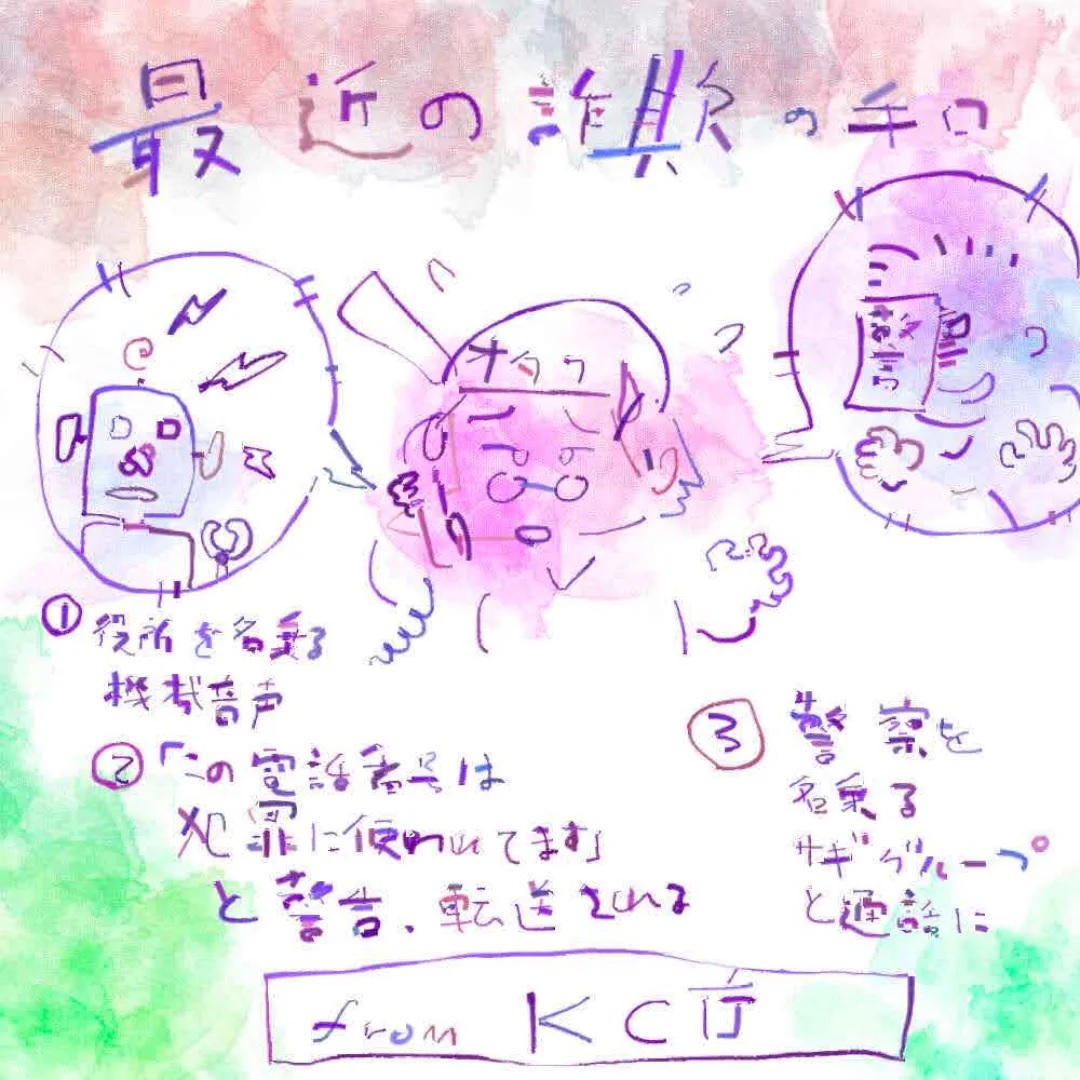 最近の詐欺の手口
オタク
警察
①役所を名乗る
機械音声
②「この電話番号は
犯罪に使われてます」
と警告、転送される
③警察を
名乗る
サギグループ
と通話に
from KC庁